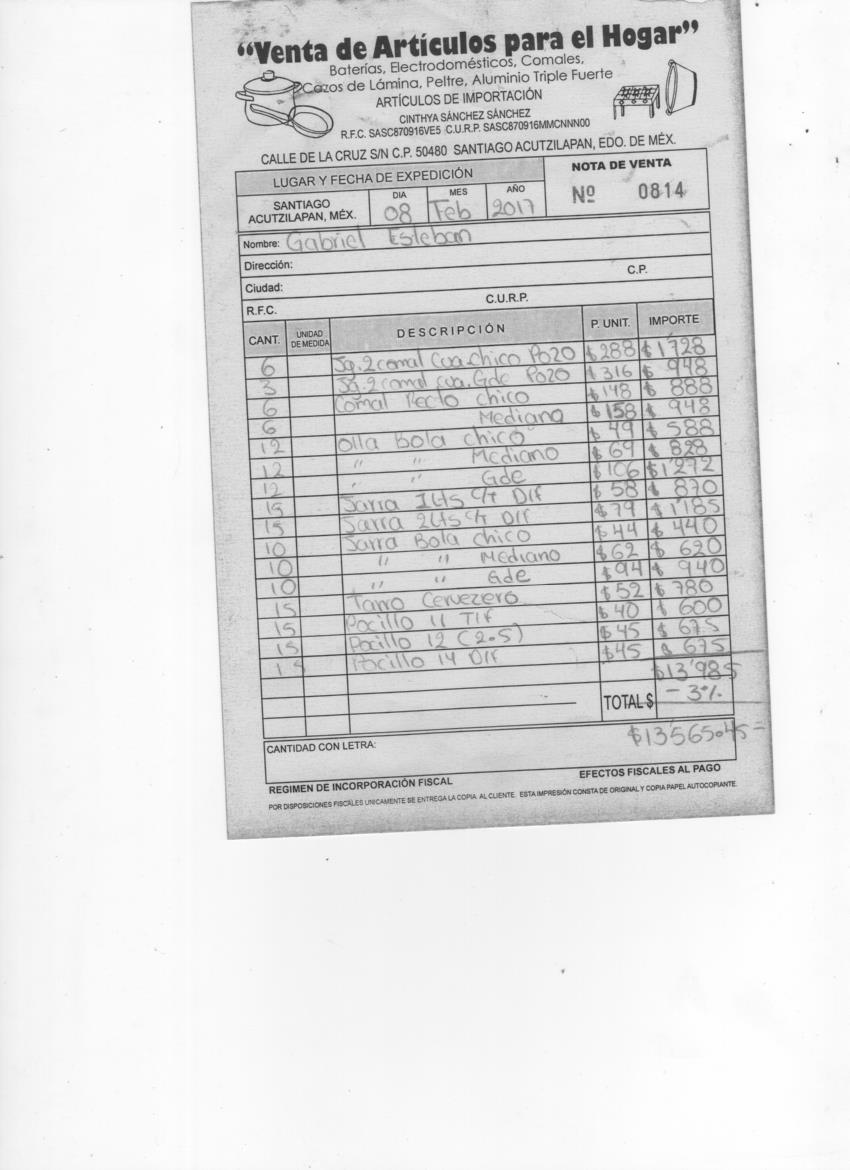 "Venta de Artículos para el Hogar"
Baterías, Electrodomésticos, Comales,
Cazos de Lámina, Peltre, Aluminio Triple Fuerte
ARTÍCULOS DE IMPORTACIÓN
CINTHYA SÁNCHEZ SÁNCHEZ
R.F.C. SASC870916VE5 C.U.R.P. SASC870916MMCNNN00
CALLE DE LA CRUZ S/N C.P. 50480 SANTIAGO ACUTZILAPAN, EDO. DE MÉX.
LUGAR Y FECHA DE EXPEDICIÓN NOTA DE VENTA
SANTIAGO ACUTZILAPAN, MÉX. DIA 08 MES Feb AÑO 2017 Nº 0814
Nombre: Gabriel Esteban
Dirección: C.P.
Ciudad:
R.F.C. C.U.R.P.
CANT. UNIDAD DE MEDIDA DESCRIPCIÓN P. UNIT. IMPORTE
6 Jg. 2 comal Cua. chico Pozo $288 $1'728
3 Jg. 2 comal cua. Gde Pozo $316 $948
6 Comal Recto chico $148 $888
6 Mediano $158 $948
12 Olla Bola chico $49 $588
12 " " Mediano $69 $828
12 " " Gde $106 $1'272
15 Jarra 1Lts c/t Dif $58 $870
15 Jarra 2Lts c/t Dif $79 $1'185
10 Jarra Bola chico $44 $440
10 " " Mediano $62 $620
10 " " Gde $94 $940
15 Tarro Cervezero $52 $780
15 Pocillo 11 Dif $40 $600
15 Pocillo 12 (2.5) $45 $675
15 Pocillo 14 Dif $45 $675
$13'985
TOTAL $ - 3%
$13'565.45=
CANTIDAD CON LETRA:
REGIMEN DE INCORPORACIÓN FISCAL EFECTOS FISCALES AL PAGO
POR DISPOSICIONES FISCALES UNICAMENTE SE ENTREGA LA COPIA AL CLIENTE. ESTA IMPRESIÓN CONSTA DE ORIGINAL Y COPIA PAPEL AUTOCOPIANTE.